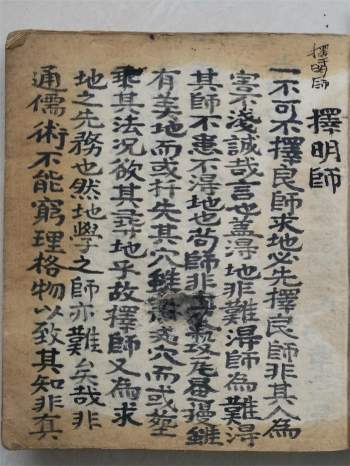 擇明師
擇明師
一不可不擇良師求地必先擇良師非其人為
害不淺誠哉言也蓋得地非難得師為難得
其師不患不得地也苟師非雖
有美地而或扦失其穴穴而或
乘其法況欲其尋地乎故擇師又為求
地之先務也然地學之師亦難矣哉非
通儒術不能窮理格物以致其知非真